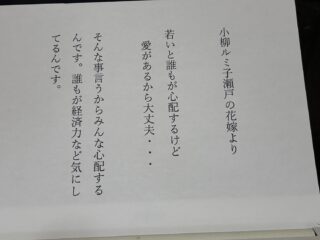 小柳ルミ子瀬戸の花嫁より
若いと誰もが心配するけど
愛があるから大丈夫・・・
そんな事言うからみんな心配する
んです。誰もが経済力など気にし
てるんです。